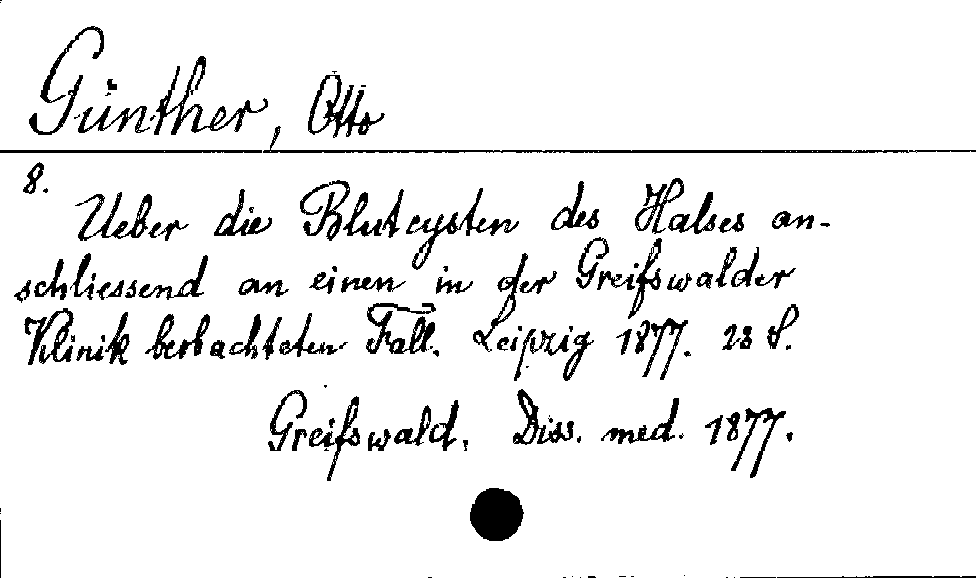 Günther, Otto
8.
Ueber die Blutcysten des Halses an-
schliessend an einen in der Greifswalder
Klinik beobachteten Fall. Leipzig 1877. 28 S.
Greifswald, Diss. med. 1877.